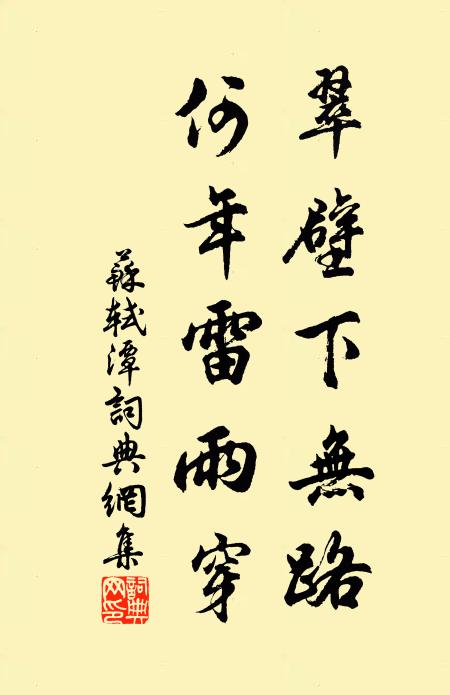 翠壁下無路
何年雷雨穿
蘇軾潭詞典網集
詞典网印